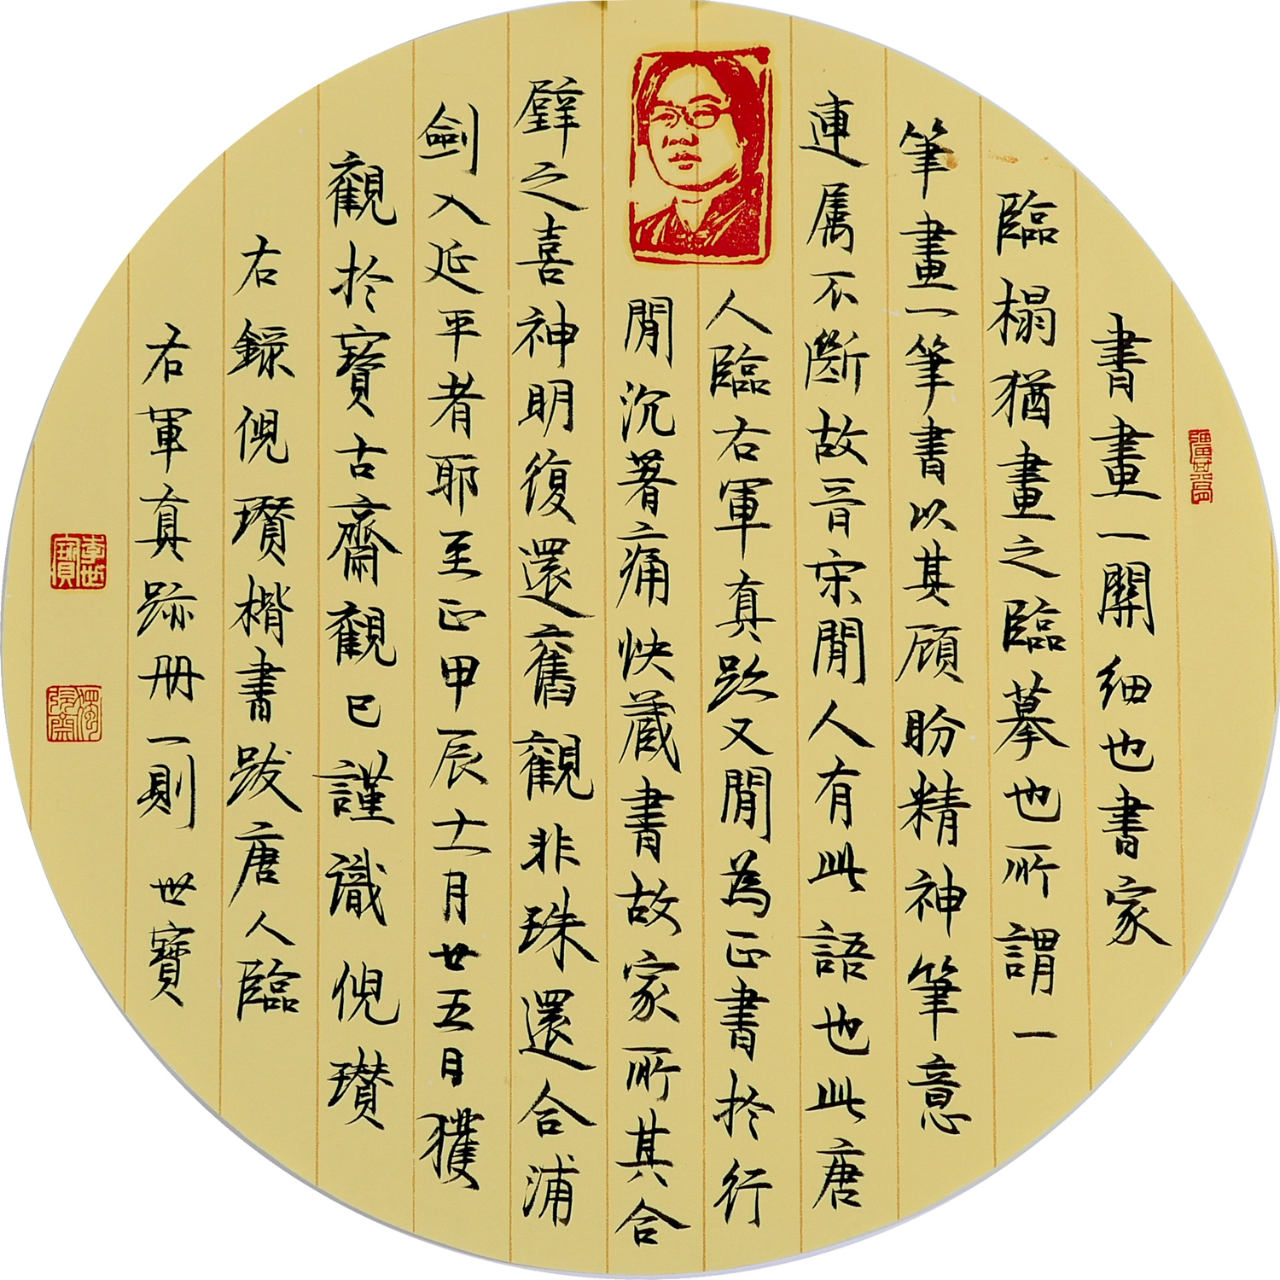 書畫一關細也書家
臨榻猶畫之臨摹也所謂一
筆畫一筆書以其顧盼精神筆意
連属不斷故晉宋閒人有此語也此唐
人臨右軍真跡又閒為正書於行
閒沉著痛快蔵書故家所其合
璧之喜神明復還舊觀非珠還合浦
劍入延平者耶至正甲辰十一月廿五日獲
觀於寶古齋觀已謹識倪瓚
右錄倪瓚楷書跋唐人臨
右軍真跡冊一則世寶
李世寶